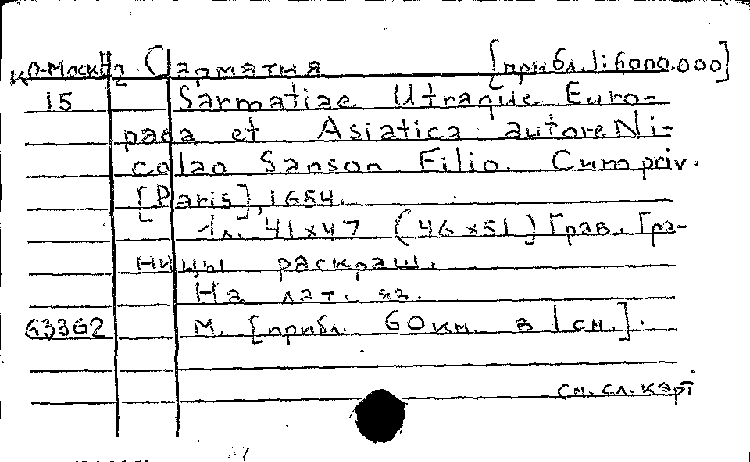 КО-Москва Сарматия [прибл. 1:6000.000]
15 Sarmatiae Utraque Euro=
paea et Asiatica autore Ni-
colao Sanson Filio. Cum priv.
[Paris], 1654.
1л. 41x47 (46x51) Грав. Гра-
ницы раскраш.
На лат. яз.
63362 М. [прибл. 60 км. в 1 см.].
см. сл. карт